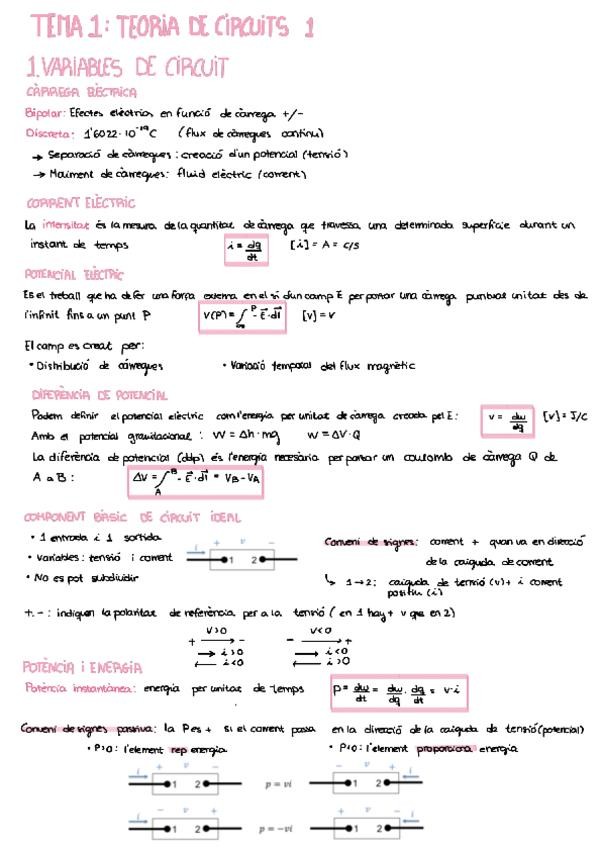 TEMA 1: TEORIA DE CIRCUITS 1
1. VARIABLES DE CIRCUIT
CÀRREGA ELÈCTRICA
Bipolar: Efectes elèctrics en funció de càrrega +/-
Discreta: 1'6022·10⁻¹⁹C (flux de càrregues continu)
→ Separació de càrregues: creació d'un potencial (tensió)
→ Moviment de càrregues: fluid elèctric (corrent)
CORRENT ELÈCTRIC
La intensitat és la mesura de la quantitat de càrrega que travessa una determinada superfície durant un
instant de temps i = dq/dt [i] = A = C/s
POTENCIAL ELÈCTRIC
És el treball que ha de fer una força externa en el si d'un camp E per portar una càrrega puntual unitat des de
l'infinit fins a un punt P V(P) = ∫∞^P -E⃗·dl⃗ [v] = V
El camp es creat per:
• Distribució de càrregues • Variació temporal del flux magnètic
DIFERÈNCIA DE POTENCIAL
Podem definir el potencial elèctric com l'energia per unitat de càrrega creada pel E: v = dw/dq [v] = J/C
Amb el potencial gravitacional: W = Δh·mg W = ΔV·Q
La diferència de potencial (ddp) és l'energia necesària per portar un coulomb de càrrega Q de
A a B: ΔV = ∫A^B -E⃗·dl⃗ = VB - VA
COMPONENT BÀSIC DE CIRCUIT IDEAL
• 1 entrada i 1 sortida
• Variables: tensió i corrent
• No es pot subdividir
i + v -
1 2
Conveni de signes: corrent + quan va en direcció
de la caiguda de corrent
↳ 1→2: caiguda de tensió (v)+ i corrent
positiu (i)
+, - : indiquen la polaritat de referència per a la tensió (en 1 hay + v que en 2)
V>0 V<0
+ → - - → +
→ i>0 → i<0
← i<0 ← i>0
POTÈNCIA I ENERGIA
Potència instantànea: energia per unitat de temps P = dw/dt = dw/dq · dq/dt = v·i
Conveni de signes passiva: la P es + si el corrent passa en la direcció de la caiguda de tensió (potencial)
• P>0: l'element rep energia • P<0: l'element proporciona energia
i + v - - v + i
1 2 p = vi 1 2
i - v + + v - i
1 2 p = −vi 1 2